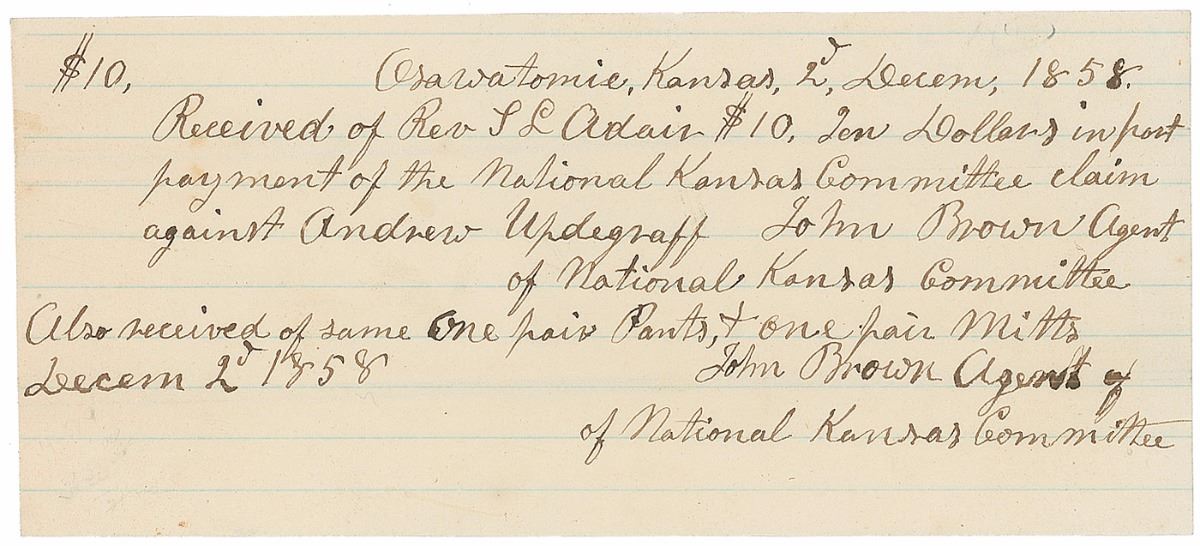 $10, Osawatomie, Kansas, 2d, Decem, 1858.
Received of Rev S L Adair $10. Ten Dollars in part
payment of the National Kansas Committee claim
against Andrew Updegraff John Brown Agent
of National Kansas Committee
Also received of same One pair Pants, & one pair Mitts
Decem 2d 1858 John Brown Agent of
of National Kansas Committee